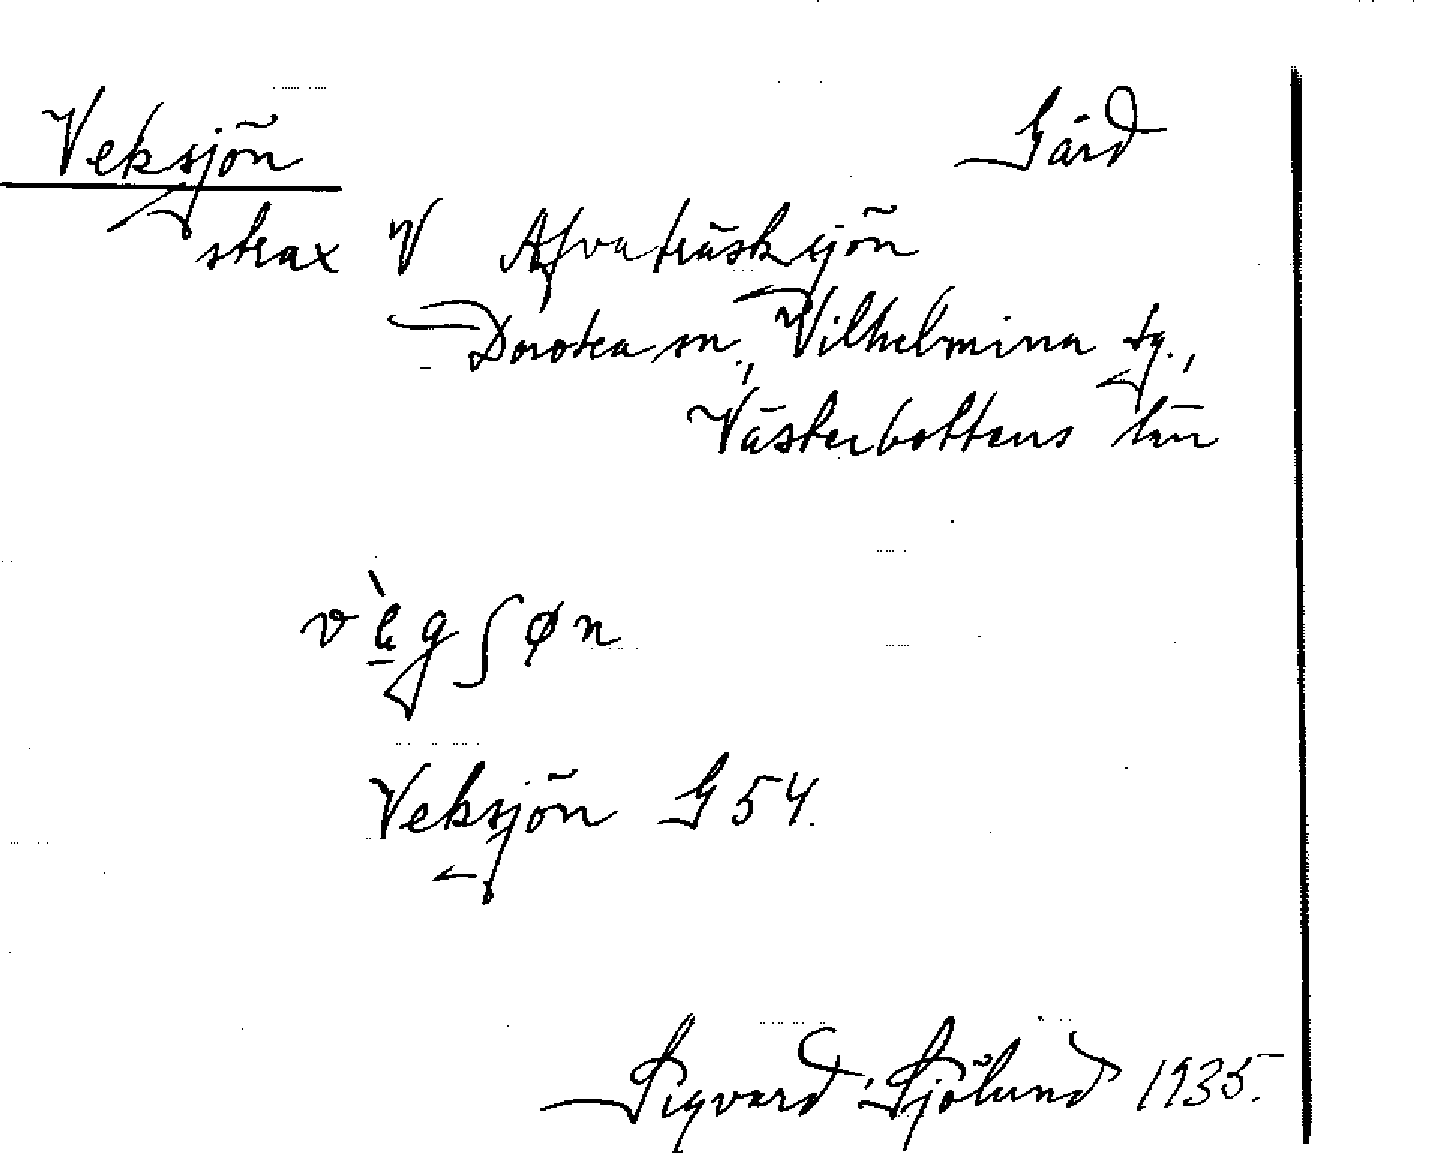 Veksjön Gård
strax V Afvaträsksjön
Dorotea sn, Vilhelmina tg.,
Västerbottens län
vè̱gʃøn
Veksjön G 54.
Sigvard Sjölund 1935.